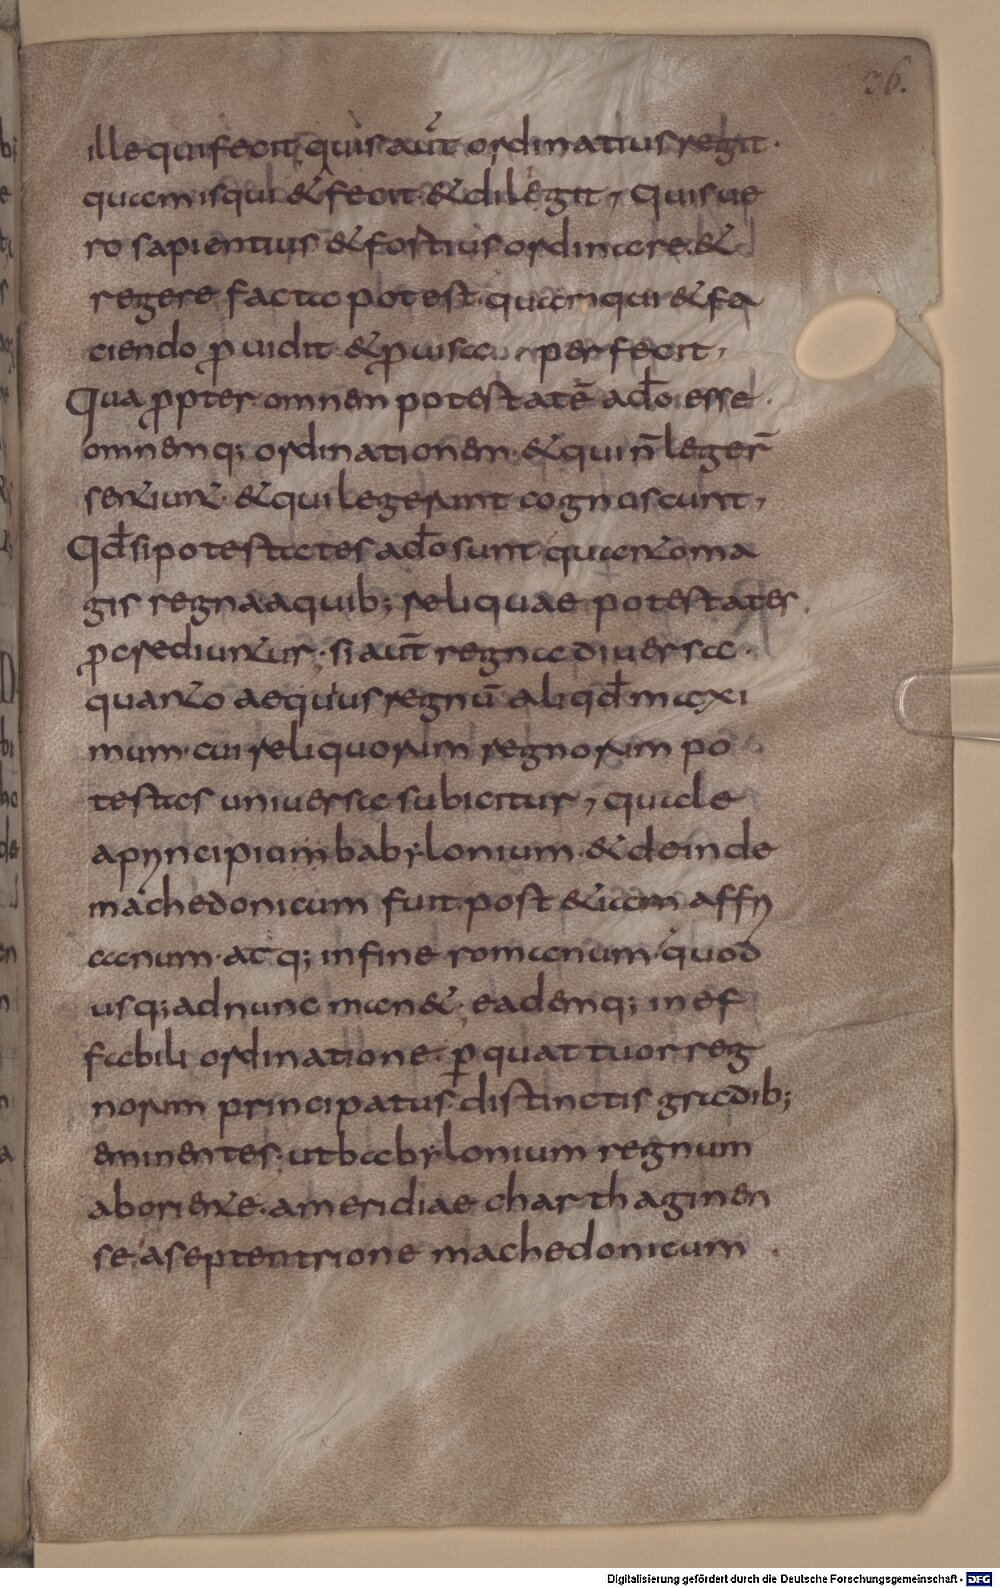 36.
ille qui fecit, quis aut̄ ordinatius regit·
quam is qui & fecit & dilegit, Quis ue
ro sapientius & fortius ordinare &
regere facta potest quam qui & fa
ciendo ꝓuidit & ꝓuisa perfecit,
Qua ꝓpter omnem potestatē a dō esse·
omnemq; ordinationem· & qui n̄ legeȓ
sentiunt· & qui legerunt cognoscunt,
Qd̄ si potestates a dō sunt quanto ma
gis regna a quib; reliquae potestates
ꝓcediuntur· si aut̄ regna diuersa·
quanto aequius regnū aliqd̄ maxi
mum· cui reliquorum regnorum po
testas uniuersa subicitur, quale
a principium babylonium· & deinde
machedonicum fuit post & iam affri
canum· atq; in fine romanum· quod
usq; ad nunc man& eademq; in ef
fabili ordinatione ꝑ quattuor reg
norum principatus distinctis gradib;
eminentes· ut babylonium regnum
ab oriente· a meridiae charthaginen
se a septentrione machedonicum
Digitalisierung gefördert durch die Deutsche Forschungsgemeinschaft - DFG